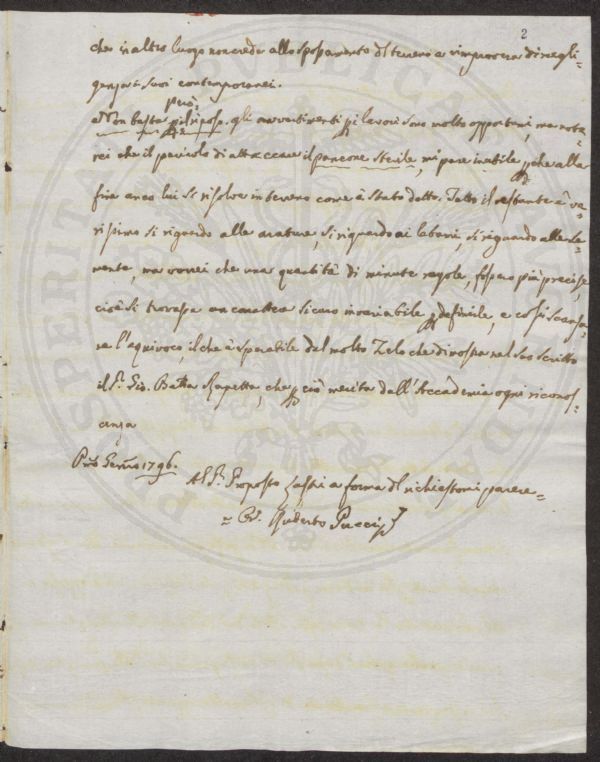 2
che in altro luogo non cede allo spossamento del terreno a rimprovera di negli-
genza i suoi contemporanei.
però
Non basta gli avvertimenti p i lavori sono molto opportuni, ma note-
rei che il pericolo di attaccare il pancone sterile, mi pare inutile, p che alla
fine anco lui si risolve in terreno come è stato detto. Tutto il restante è ve-
rissimo sì riguardo alle arature, sì riguardo ai lavori, sì riguardo alle se-
mente, ma vorrei che una quantità di minute regole, fossero più precise,
cioè si trovasse un carattere sicuro invariabile p definirle, e così scansa-
re l'equivoco, il che è sperabile dal molto Zelo che dimostra nel suo scritto
il Sr. Gio. Batta Rapetta, che p ciò merita dall'Accademia ogni riconos-
cenza
Pmo Genno 1796.
Al Sr. Proposto Lastri a forma del richiestomi parere =
= Ruberto Pucci
PROSPERITA PUBBLICA